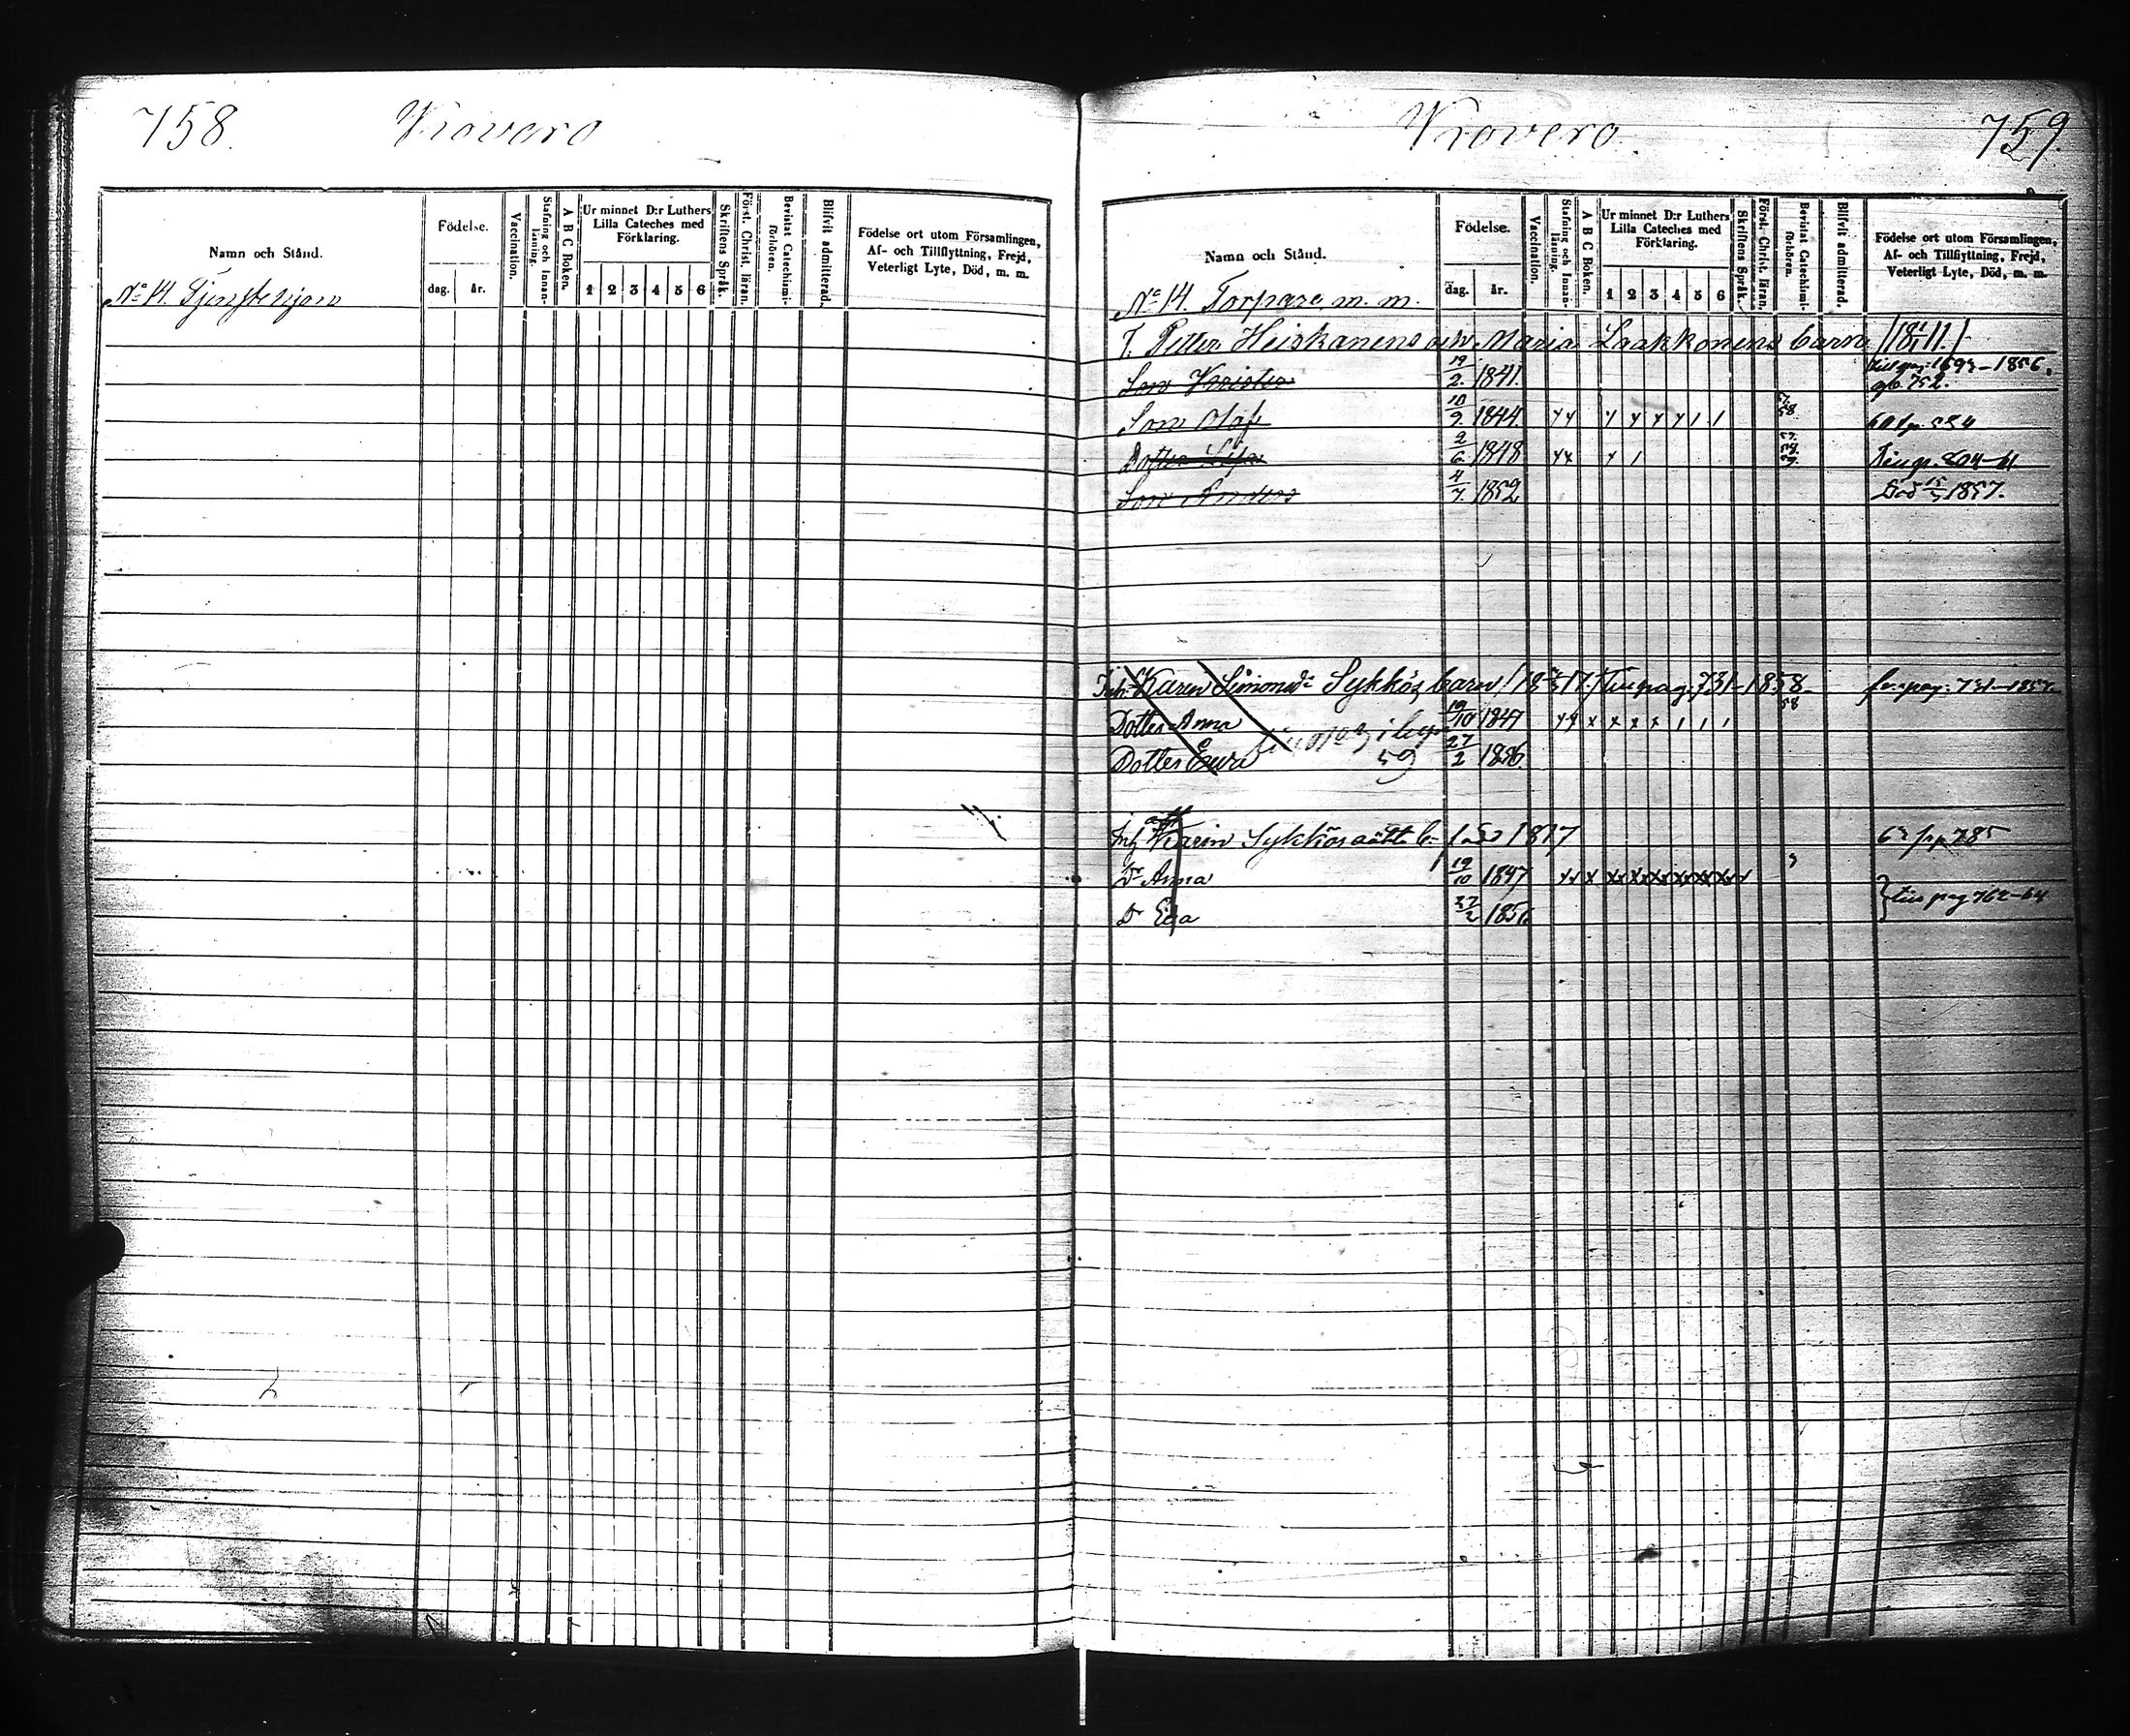 758. Viovero
Namn och Stånd.
Födelse.
dag. år.
Vaccination.
Stafning och Innan-läsning.
A B C Boken.
Ur minnet D:r Luthers Lilla Cateches med Förklaring.
1 2 3 4 5 6
Skriftens Språk.
Först. Christ. läran.
Bevistat Catechismi-förhören.
Blifvit admitterad.
Födelse ort utom Församlingen, Af- och Tillflyttning, Frejd, Veterligt Lyte, Död, m. m.
No 14. Tjenstehjon
Viovero. 759.
Namn och Stånd.
Födelse.
dag. år.
Vaccination.
Stafning och Innan-läsning.
A B C Boken.
Ur minnet D:r Luthers Lilla Cateches med Förklaring.
1 2 3 4 5 6
Skriftens Språk.
Först. Christ. läran.
Bevistat Catechismi-förhören.
Blifvit admitterad.
Födelse ort utom Församlingen, Af- och Tillflyttning, Frejd, Veterligt Lyte, Död, m. m.
No 14. Torpare m. m.
T. Petter Heiskanens o. h. Maria Laakkonens barn
Son 19/2. 1841. 1856. 752.
Son Olof 10/9. 1844. 58.
Dotter Lisa 2/6 1848
Son Anders 4/7. 1852 Död 1857.
Karin Simonsdr Sykkös barn pag. 731-1858 pag. 731-1857
Dotter Anna 19/10 1847 58
Dotter Eeva 59 27/2 1856.
Inh Karin Sykkös oäkta b. 1817 785
Dr Anna 19/10 1847
Dr Eva 27/2 1856 pag 762-64